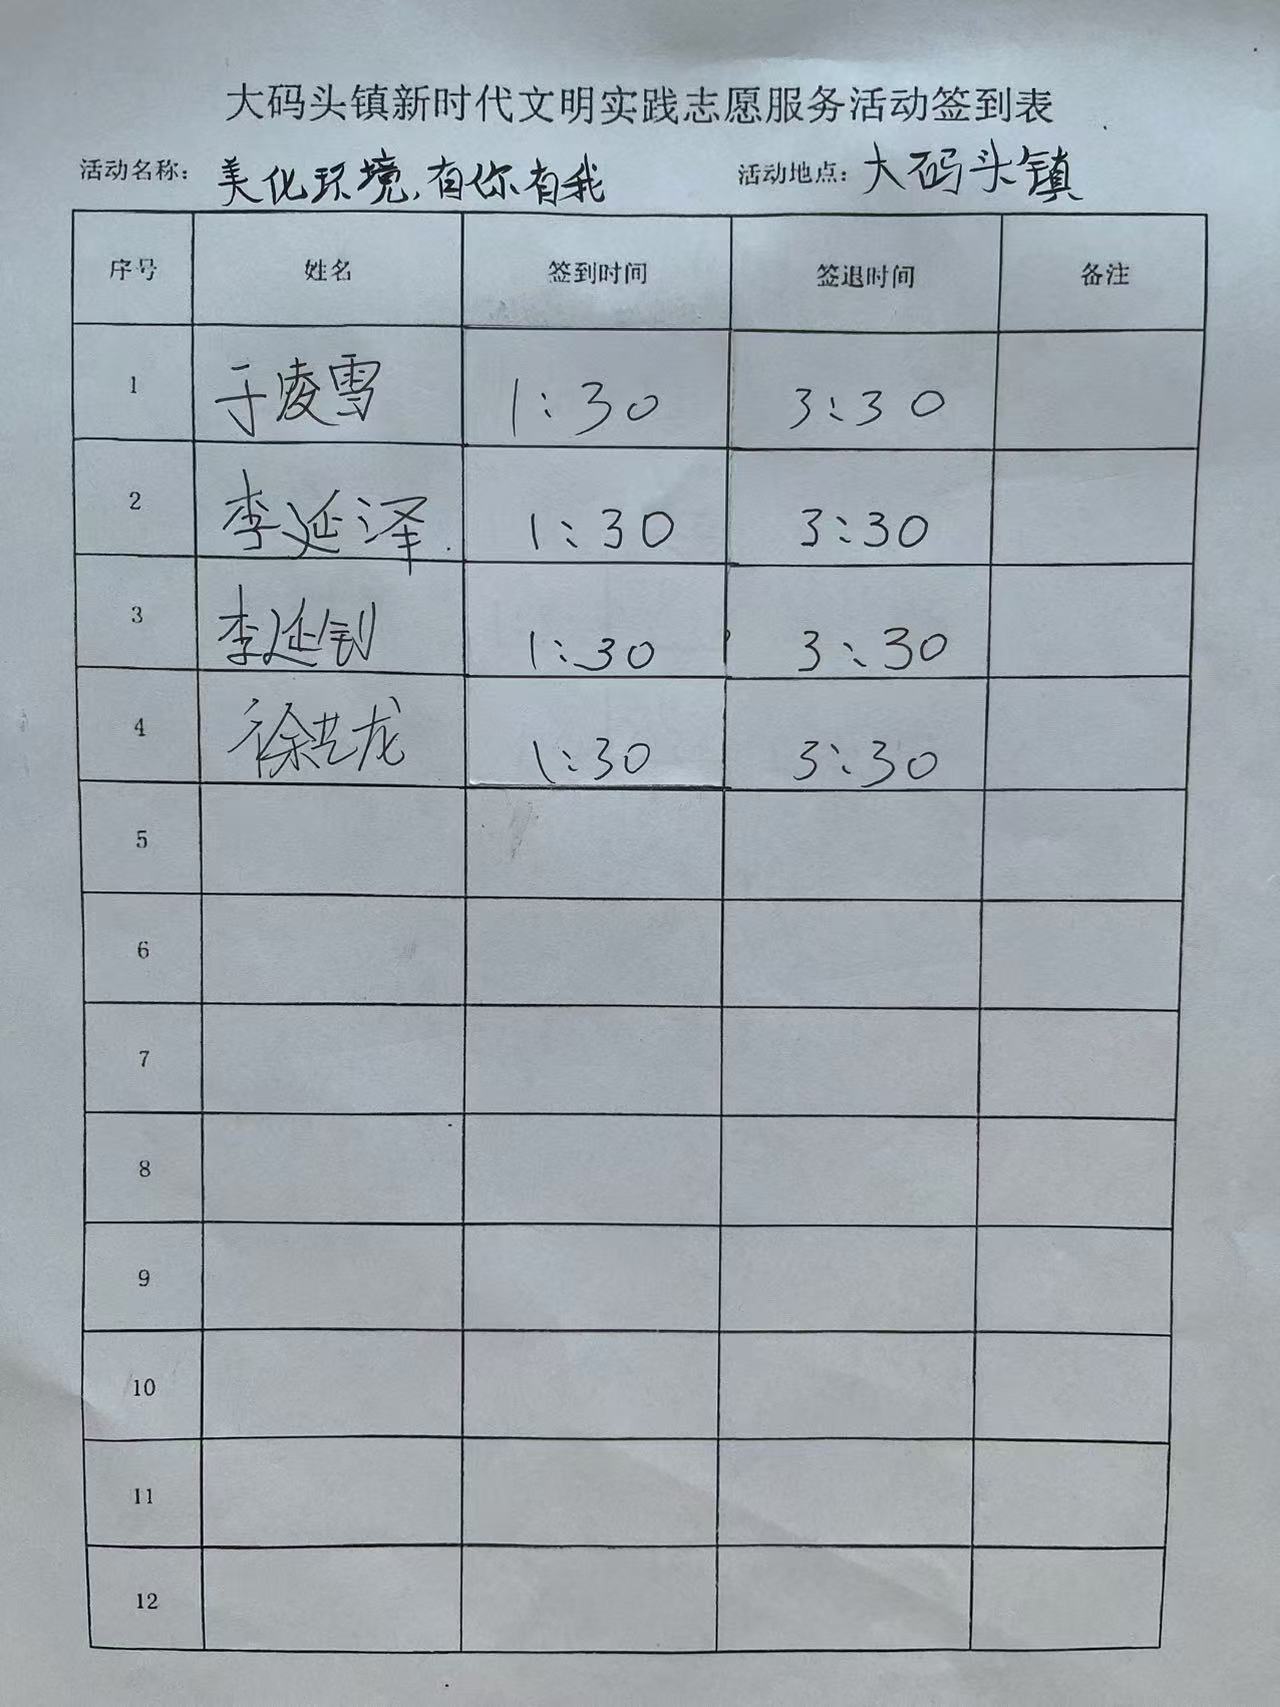 大码头镇新时代文明实践志愿服务活动签到表
活动名称：美化环境，有你有我 活动地点：大码头镇
序号 姓名 签到时间 签退时间 备注
1 于凌雪 1:30 3:30
2 李延泽 1:30 3:30
3 李延钊 1:30 3:30
4 徐艺龙 1:30 3:30
5
6
7
8
9
10
11
12